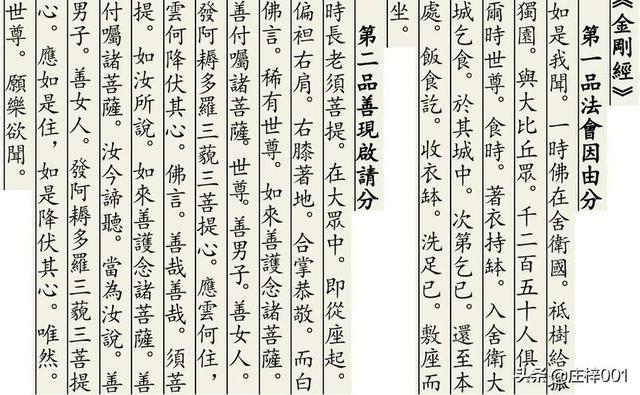 《金剛經》
第一品法會因由分
如是我聞。一時佛在舍衛國。祗樹給孤
獨園。與大比丘眾。千二百五十人俱。
爾時世尊。食時。著衣持缽。入舍衛大
城乞食。於其城中。次第乞已。還至本
處。飯食訖。收衣缽。洗足已。敷座而
坐。
第二品善現啟請分
時長老須菩提。在大眾中。即從座起。
偏袒右肩。右膝著地。合掌恭敬。而白
佛言。稀有世尊。如來善護念諸菩薩。
善付囑諸菩薩。世尊。善男子。善女人。
發阿耨多羅三藐三菩提心。應雲何住，
雲何降伏其心。佛言。善哉善哉。須菩
提。如汝所說。如來善護念諸菩薩。善
付囑諸菩薩。汝今諦聽。當為汝說。善
男子。善女人。發阿耨多羅三藐三菩提
心。應如是住，如是降伏其心。唯然。
世尊。願樂欲聞。
头条 @庄梓001